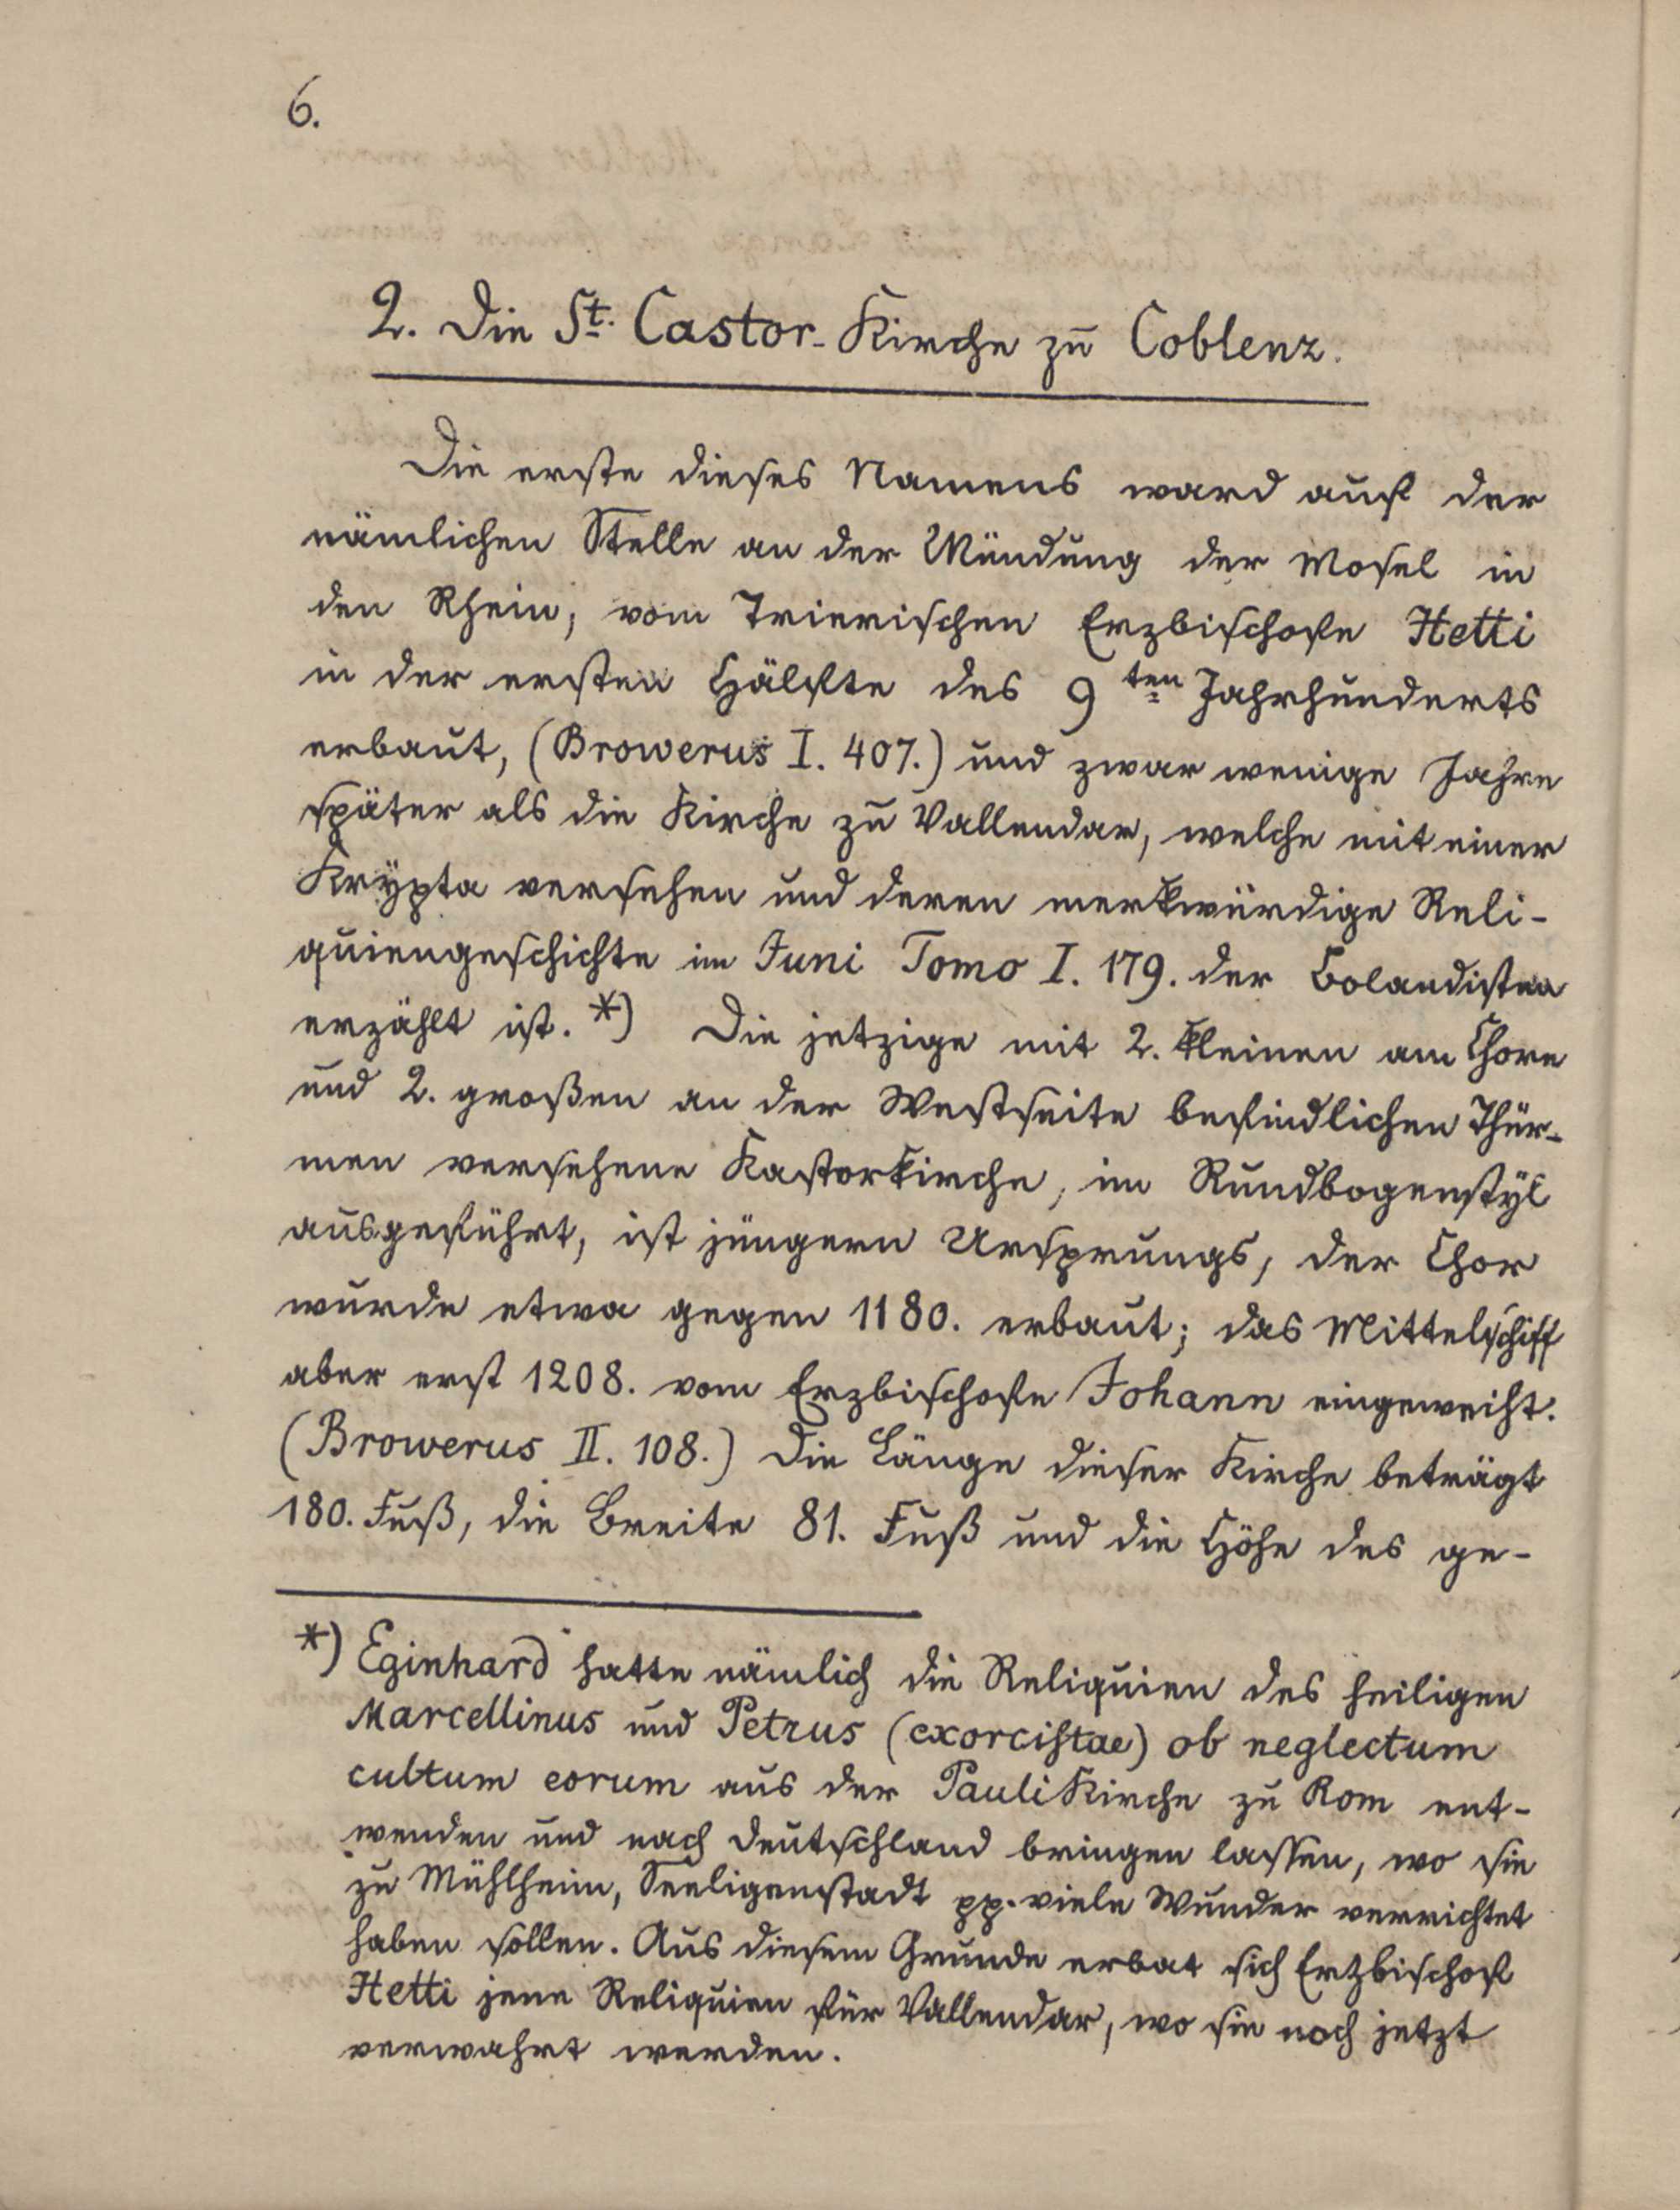 6.
2. Die St. Castor-Kirche zu Coblenz.
Die erste dieses Namens ward auf der
nämlichen Stelle an der Mündung der Mosel in
den Rhein, vom Trierischen Erzbischofe Hetti
in der ersten Hälfte des 9ten Jahrhunderts
erbaut, (Browerus I. 407.) und zwar wenige Jahre
später als die Kirche zu Vallendar, welche mit einer
Krypta versehen und deren merkwürdige Reli-
quiengeschichte im Juni Tomo I. 179. der Bolandisten
erzählt ist. *) Die jetzige mit 2. kleinen am Chore
und 2. großen an der Westseite befindlichen Thür-
men versehene Kastorkirche, im Rundbogenstÿl
ausgeführt, ist jüngern Ursprungs, der Chor
wurde etwa gegen 1180. erbaut; das Mittelschiff
aber erst 1208. vom Erzbischofe Johann eingeweiht.
(Browerus II. 108.) Die Länge dieser Kirche beträgt
180. Fuß, die Breite 81. Fuß und die Höhe des ge-
*) Eginhard hatte nämlich die Reliquien des heiligen
Marcellinus und Petrus (exorcistae) ob neglectum
cultum eorum aus der Pauli Kirche zu Rom ent-
wenden und nach Deutschland bringen lassen, wo sie
zu Mühlheim, Seeligenstadt pp. viele Wunder verrichtet
haben sollen. Aus diesem Grunde erbat sich Erzbischof
Hetti jene Reliquien für Vallendar, wo sie noch jetzt
verwahrt werden.